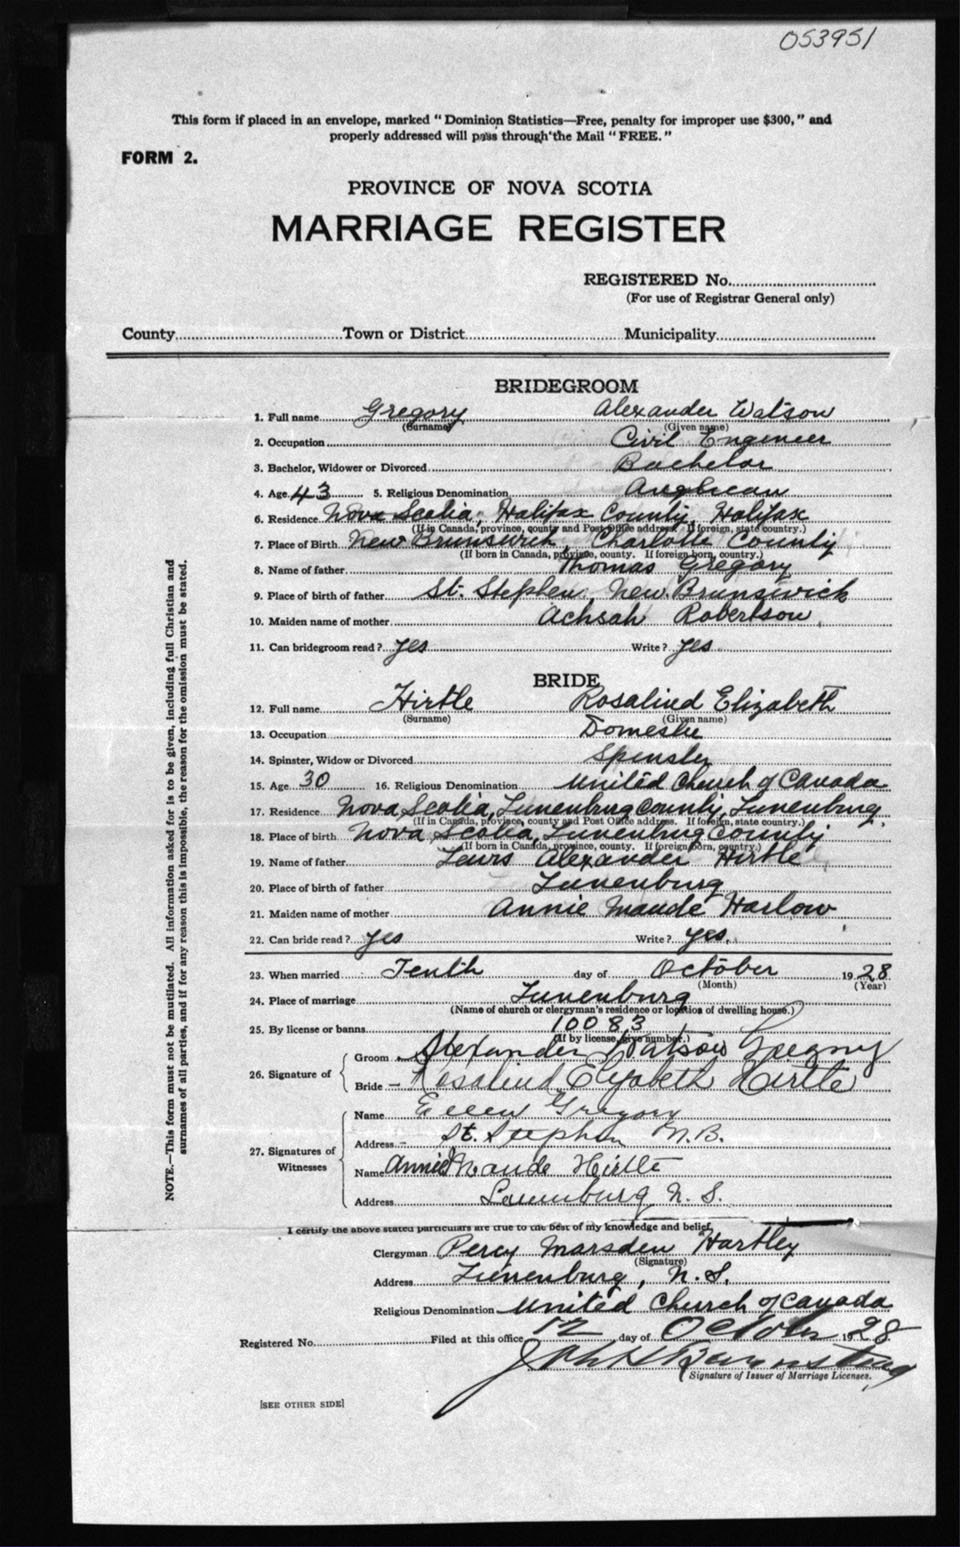 053951
This form if placed in an envelope, marked "Dominion Statistics—Free, penalty for improper use $300," and
properly addressed will pass through the Mail "FREE."
FORM 2.
PROVINCE OF NOVA SCOTIA
MARRIAGE REGISTER
REGISTERED No.
(For use of Registrar General only)
County Town or District Municipality
BRIDEGROOM
1. Full name Gregory Alexander Watson
(Surname) (Given name)
2. Occupation Civil Engineer
3. Bachelor, Widower or Divorced Bachelor
4. Age 43 5. Religious Denomination Anglican
6. Residence Nova Scotia, Halifax County, Halifax
(If in Canada, province, county and Post Office address. If foreign, state country.)
7. Place of Birth New Brunswick, Charlotte County
(If born in Canada, province, county. If foreign born, country.)
8. Name of father Thomas Gregory
9. Place of birth of father St. Stephen, New Brunswick
10. Maiden name of mother Achsah Robertson
11. Can bridegroom read? yes Write? yes
BRIDE
12. Full name Hirtle Rosalind Elizabeth
(Surname) (Given name)
13. Occupation Domestic
14. Spinster, Widow or Divorced Spinster
15. Age 30 16. Religious Denomination United Church of Canada
17. Residence Nova Scotia, Lunenburg County, Lunenburg
(If in Canada, province, county and Post Office address. If foreign, state country.)
18. Place of birth Nova Scotia, Lunenburg County
(If born in Canada, province, county. If foreign born, country.)
19. Name of father Lewis Alexander Hirtle
20. Place of birth of father Lunenburg
21. Maiden name of mother Annie Maude Harlow
22. Can bride read? yes Write? yes.
23. When married Tenth day of October 1928
(Month) (Year)
24. Place of marriage Lunenburg
(Name of church or clergyman's residence or location of dwelling house.)
25. By license or banns 10083
(If by license, give number.)
26. Signature of Groom Alexander Watson Gregory
Bride Rosalind Elizabeth Hirtle
27. Signatures of Witnesses Name Ellen Gregory
Address St. Stephen N.B.
Name Annie Maude Hirtle
Address Lunenburg N. S.
I certify the above stated particulars are true to the best of my knowledge and belief.
Clergyman Percy Marsden Hartley
(Signature)
Address Lunenburg, N.S.
Religious Denomination United Church of Canada
Registered No. Filed at this office 12 day of October 1928
(Signature of Issuer of Marriage Licenses.
[SEE OTHER SIDE]
NOTE.—This form must not be mutilated. All information asked for is to be given, including full Christian and
surnames of all parties, and if for any reason this is impossible, the reason for the omission must be stated.